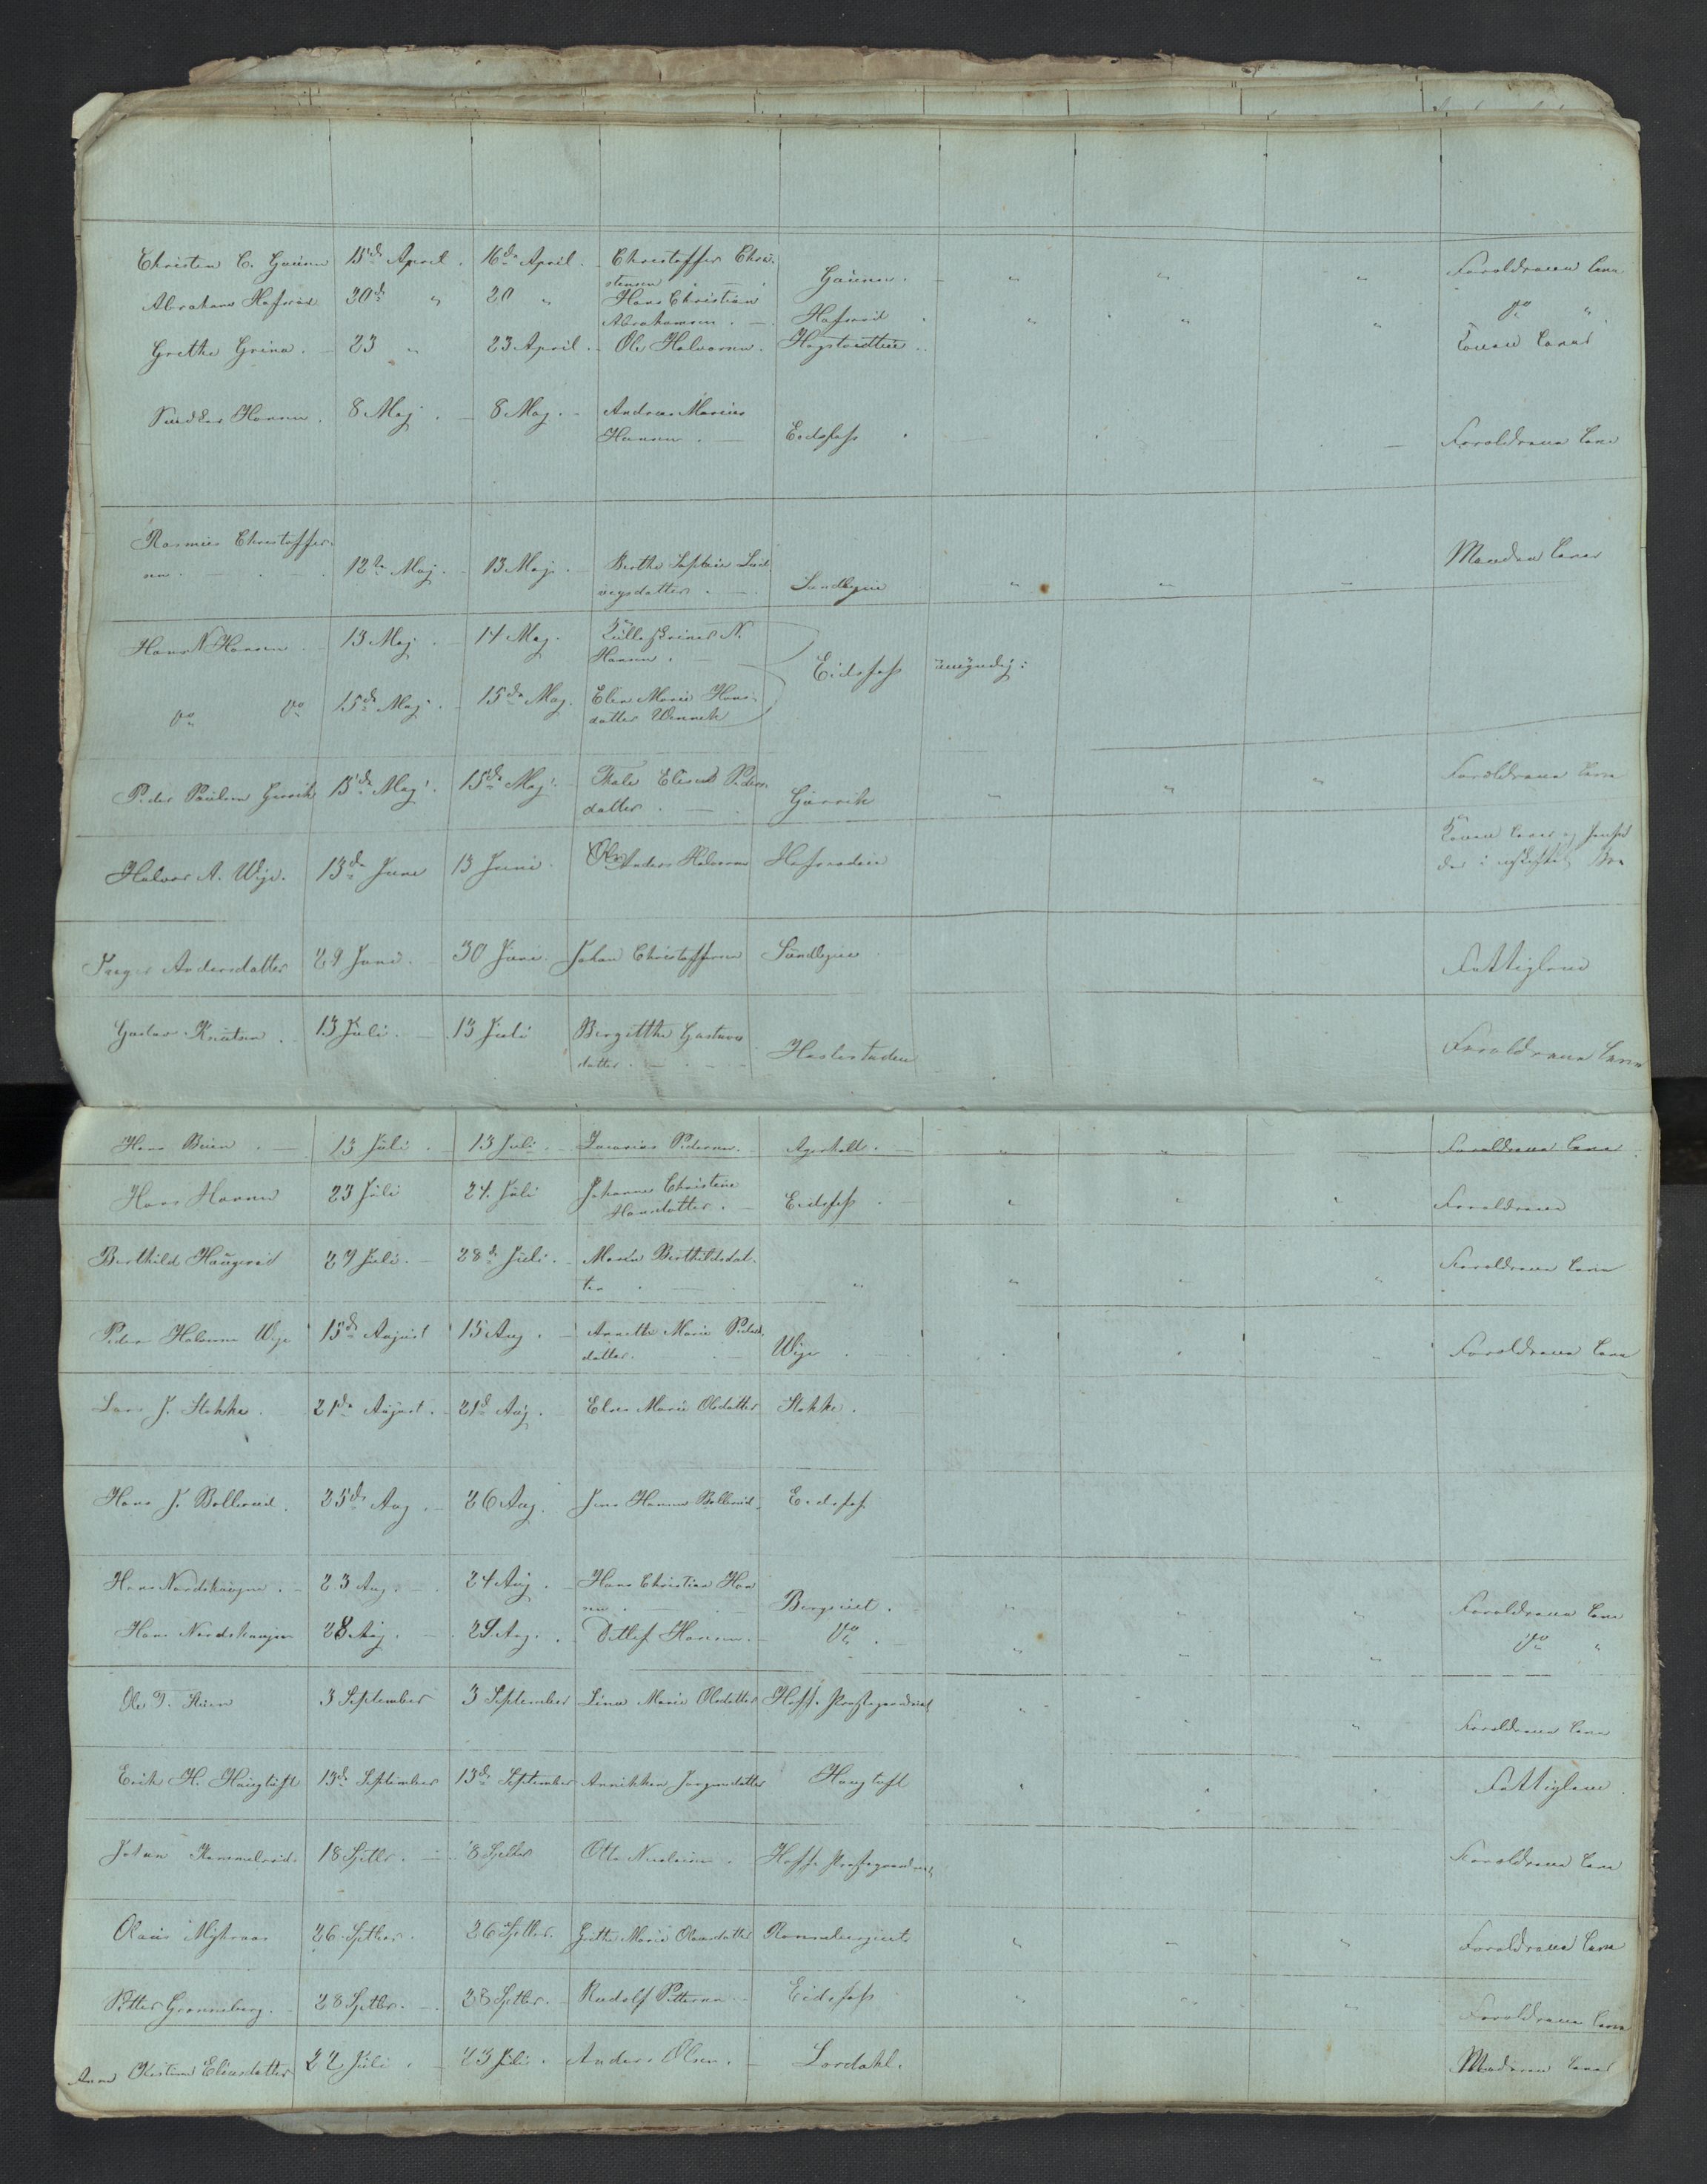 Christen C. Gaúsen 15de April. 16de April. Christoffer Chri-
stensen Gaúsen. " " " Foroldrene leve
Abraham Hafsrød 20de " 20 " Hans Christian
Abrahamsen. Hafsrød " " " do "
Grethe Grina. 23 " 23 April. Ole Halvorsen. Hagstadteie
Konen lever
Hansen. 8 Maj. 8 Maj. Andreas Marius
Hansen. Eidsfoss Foroldrene leve
Rasmus Christoffer-
sen. 12te Maj. 13 Maj. Berthe Sophie Lud-
vigsdatter. Sundbyeie " " " Manden lever
Hans N Hansen 13 Maj. 14 Maj. N.
Hansen.
Eidsfoss umyndig:
do do 15de Maj. 15de Maj. Elen Marie Hans-
datter Wennek
Peder Paulsen Gjervik 15de Maj. 15de Maj. Thale Elisab Peders-
datter. Gjervik " " " Foroldrene leve
Halvor A. Wije. 13de Juni 13 Juni. Ole Anders Halvorsen Hafsrødeie
Konen lever og
der i uskiftet Bo
Andersdatter 29 Juni. 30 Juni. Johan Christoffersen Sundbyeie Fattiglem
Gustav Knútsen. 13 Júli. 13 Júli Bergitthe Gustavs-
datter. Haslestadeie Foroldrene leve
Hans Búen. 13 Júli. 13 Júli. Zacarias Pedersen. Agerholt. " " Foroldrene leve
Hans Hansen 23 Júli 24 Júli Johanne Christine
Hansdatter. Eidsfoss. " " " Foroldrene
Berthild Haúgerød 27 Júli. 28de Júli. Maria Berthildsdat-
ter " " " " Foroldrene leve
Peder Halvorsen Wije 15de August 15 Aug. Annette Marie Peders-
datter. Wije Foroldrene leve
Lars J. Stokke. 21de Aúgust. 21de Aúg. Elen Marie Olsdatter Stokke.
Hans J. Bollerúd. 25de Aug. 26 Aug. Jens Hansen Bollerúd. Eidsfoss
Hans Nordskaúgen. 23 Aug. 24 Aúg. Hans Christian Han-
sen. Bergseiet. " " " Foroldrene leve
Hans Nordskaugen 28 Aúg. 29 Aug. Detlef Hansen. do. " " " do "
Ole T. Stúen 3 September 3 September Lina Marie Olsdatter Hoff. Prestegaardseiet " " " Foroldrene leve
Erik H. Haúgtúft 13de September 13de September Annikken Jørgensdatter Haugtúft Fattiglem.
Johan Hammelsrød. 18 Septbr. 18 Septbr Otto Nicolaisen. Hoff. Prestegaardseiet Foroldrene leve
Olaús Myhraas 26 Septbr. 26 Septbr. Grethe Marie Olausdatter Rønnebergseiet " " " Foroldrene leve
Petter Grønneberg. 28 Septbr. 28 Septbr. Rudolf Pettersen Eidsfoss " " " Foroldrene leve
Anne Kristine Eliasdatter 22 Júli. 23 Júli. Anders Olsen. Lordahl. Moderen lever